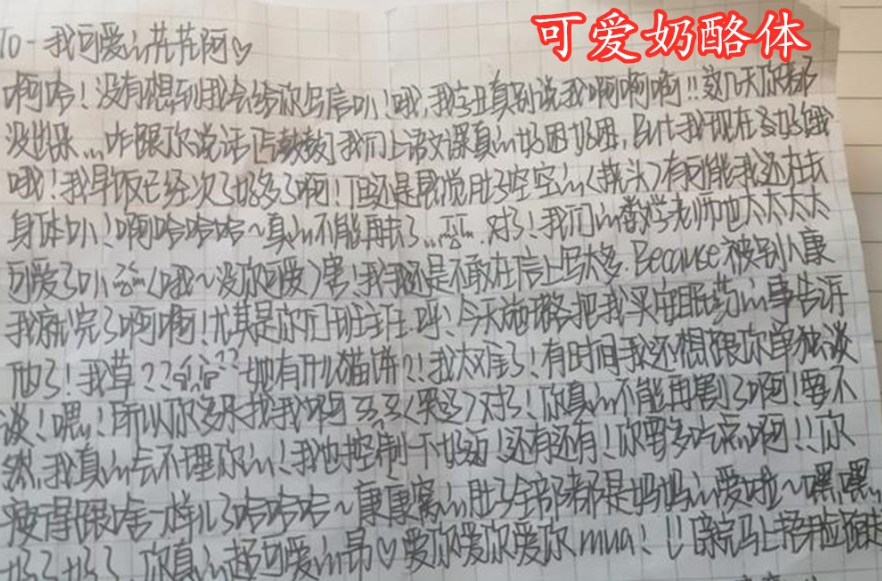 可爱奶酪体
TO-我可爱的芃芃阿♡
啊哈！没有想到我会给你写信叭！哦,我当真别说我啊啊啊!!这几天你都
没出来...咋跟你说话[气鼓鼓]我们上语文课真的好困好困,且我现在好饿
哦！我早饭已经次了好多了啊！但还是感觉肚子空空的(挠头)有可能我还在长
身体叭！啊哈哈哈~真的不能再长了...对了！我们的数学老师也太太太太
可爱了叭(哦~没你可爱)害！我还是不敢在信上写太多.Because被别人康
我就完了啊啊！尤其是你们班班主任呼！今天她把我买安眠药的事告诉
他了！我草？？？？她有什么猫饼？？我太难了！有时间我还想跟你单独谈
谈！嗯！所以你多来找我啊(哭)对了！你真的不能再割了啊！要不
然,我真的会不理你的！我也控制一下好迈！还有还有！你要多吃点啊！！你
瘦得跟啥一样儿了哈哈哈~康康窝的肚子全部都是妈妈的爱啦~嘿嘿,
好了好了,你真的超可爱的昂♡爱你爱你爱你mua！